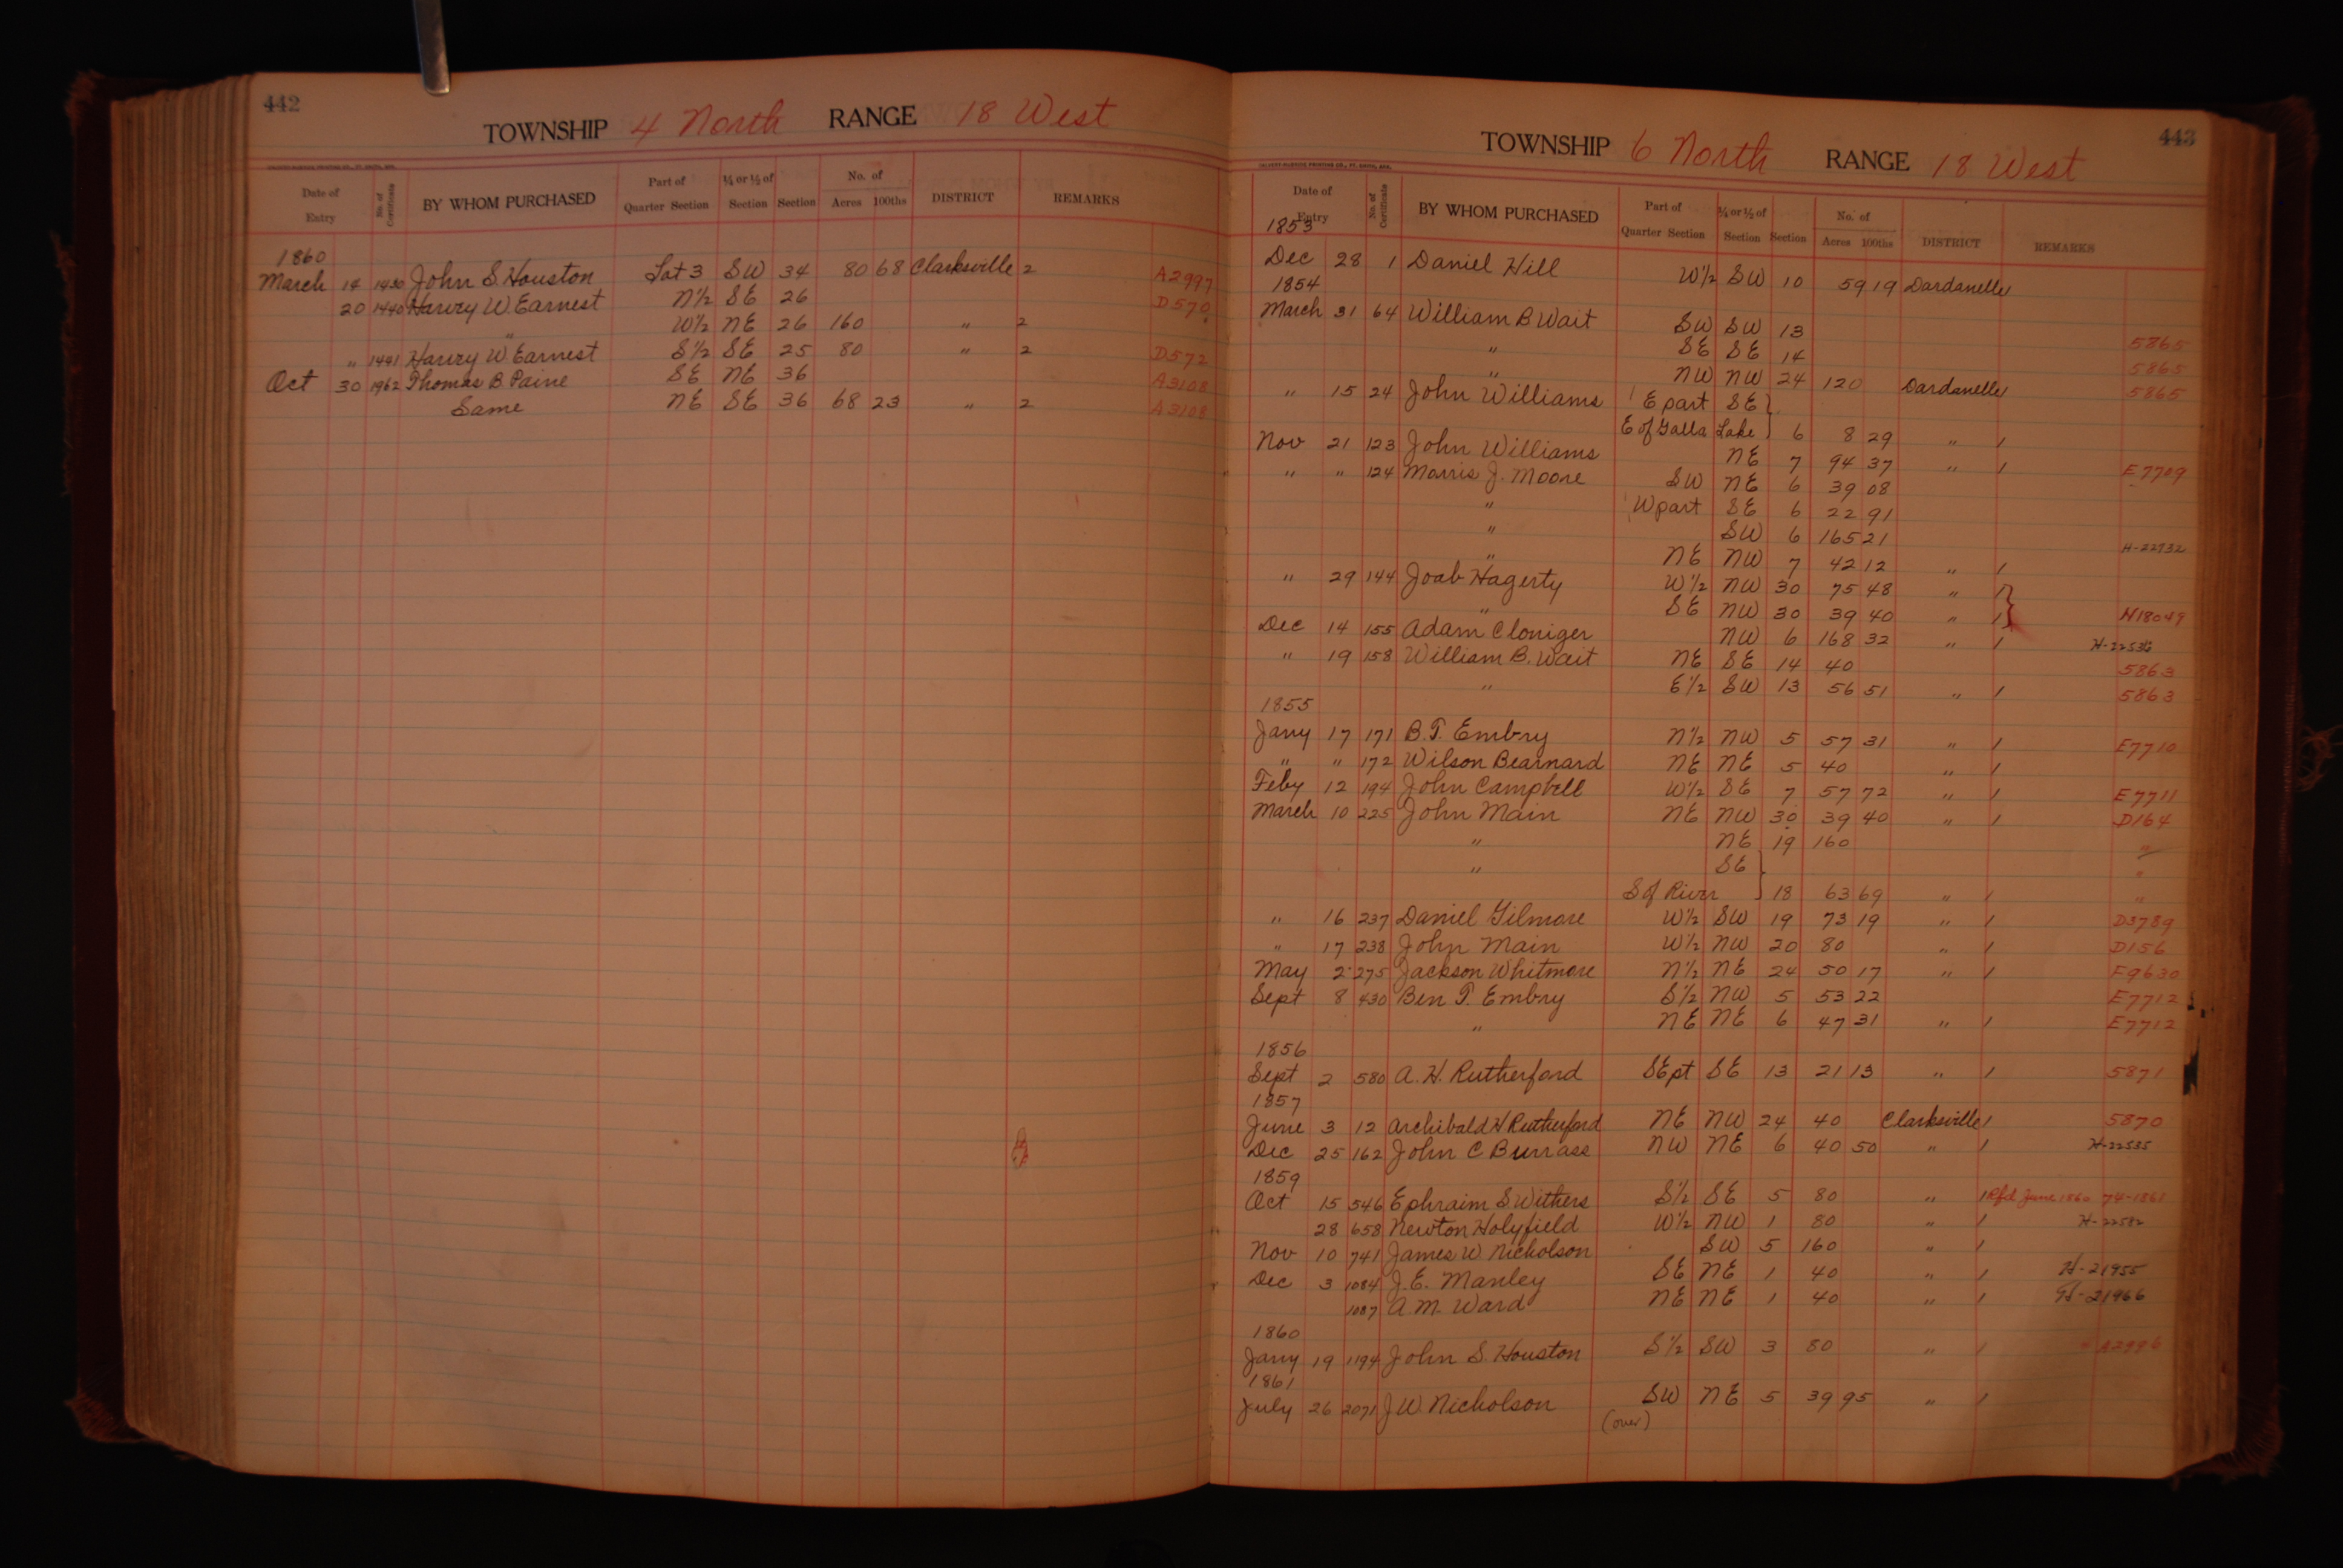 442
TOWNSHIP 4 North RANGE 18 West
Date of Entry No. of Certificate BY WHOM PURCHASED Part of Quarter Section ¼ or ½ of Section Section No. of Acres 100ths DISTRICT REMARKS
1860
March 14 1430 John S. Houston Lot 3 SW 34 80 68 Clarksville 2 A2997
20 1440 Harvey W. Earnest N½ SE 26 D570
" W½ NE 26 160 " 2
" 1441 Harvey W. Earnest S½ SE 25 80 " 2 D572
Oct 30 1962 Thomas B. Paine SE NE 36 A3108
Same NE SE 36 68 23 " 2 A3108
443
TOWNSHIP 6 North RANGE 18 West
Date of Entry No. of Certificate BY WHOM PURCHASED Part of Quarter Section ¼ or ½ of Section Section No. of Acres 100ths DISTRICT REMARKS
1853
Dec 28 1 Daniel Hill W½ SW 10 59 19 Dardanelle
1854
March 31 64 William B Wait SW SW 13 5865
" SE SE 14 5865
" NW NW 24 120 Dardanelle 1 5865
" 15 24 John Williams E part SE
E of Galla Lake 6 8 29 " 1
Nov 21 123 John Williams NE 7 94 37 " 1 E7709
" " 124 Morris J. Moore SW NE 6 39 08
" W part SE 6 22 91
" SW 6 165 21
" NE NW 7 42 12 " 1 H-22932
" 29 144 Joab Hagerty W½ NW 30 75 48 " 1
" SE NW 30 39 40 " 1 H18049
Dec 14 155 Adam Cloniger NW 6 168 32 " 1
" 19 158 William B. Wait NE SE 14 40 5863
" E½ SW 13 56 51 " 1 5863
1855
Jany 17 171 B. T. Embry N½ NW 5 57 31 " 1 E7710
" " 172 Wilson Bearnard NE NE 5 40 " 1
Feby 12 194 John Campbell W½ SE 7 57 72 " 1 E7711
March 10 225 John Main NE NW 30 39 40 " 1 D164
" NE 19 160 "
" SE "
S of River 18 63 69 " 1 "
" 16 237 Daniel Gilmore W½ SW 19 73 19 " 1 D3789
" 17 238 John Main W½ NW 20 80 " 1 D156
May 2 275 Jackson Whitmore N½ NE 24 50 17 " 1 F9630
Sept 8 430 Ben T. Embry S½ NW 5 53 22 E7712
" NE NE 6 47 31 " 1 E7712
1856
Sept 2 580 A. H. Rutherford SE pt SE 13 21 13 " 1 5871
1857
June 3 12 Archibald H Rutherford NE NW 24 40 Clarksville 1 5870
Dec 25 162 John C Burrass NW NE 6 40 50 " 1 H-22535
1859
Oct 15 546 Ephraim S Withers S½ SE 5 80 " 1 Rfd June 1860 74-1861
28 658 Newton Holyfield W½ NW 1 80 " 1 H-22582
Nov 10 741 James W Nicholson SW 5 160 " 1
Dec 3 1084 J. E. Manley SE NE 1 40 " 1 H-21955
1087 A. M. Ward NE NE 1 40 " 1 H-21966
1860
Jany 19 1194 John S. Houston S½ SW 3 80 " 1 A2996
1861
July 26 2071 J W. Nicholson SW NE 5 39 95 " 1
(over)